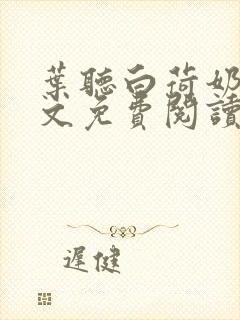 葉聽白荷奶
文免費閱讀
遲健